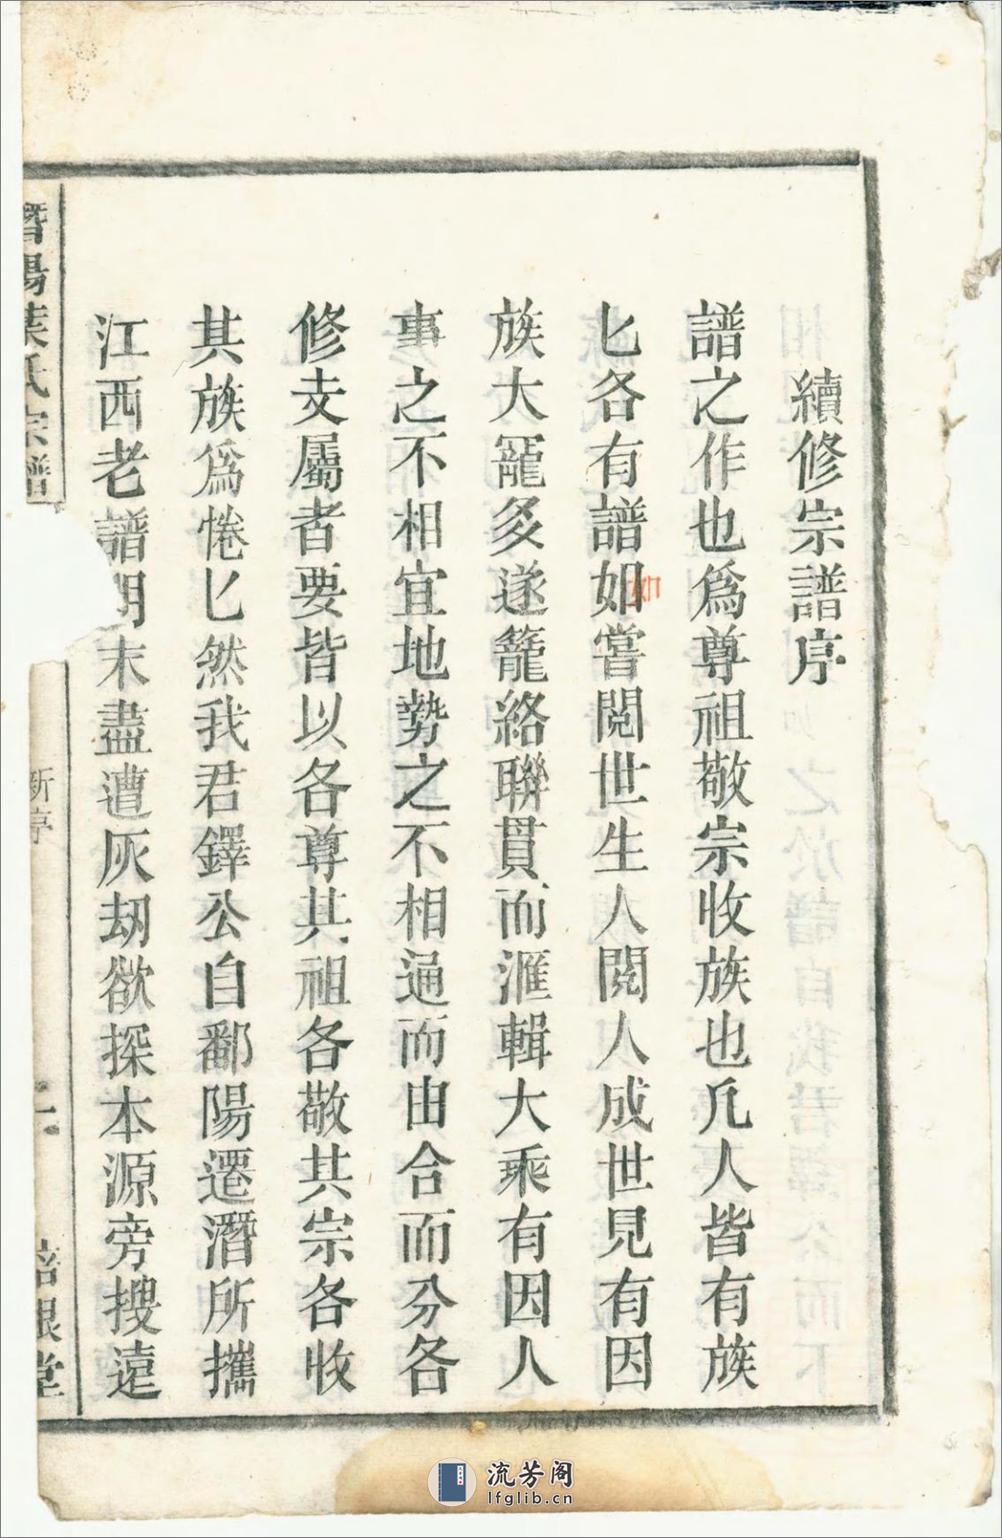 續修宗譜序
譜之作也爲尊祖敬宗收族也凡人皆有族
匕各有譜如嘗閱世生人閱人成世見有因
族大寵多遂籠絡聯貫而滙輯大乘有因人
事之不相宜地勢之不相通而由合而分各
修支屬者要皆以各尊其祖各敬其宗各收
其族爲惓匕然我君鐸公自鄱陽遷潛所攜
江西老譜明末盡遭灰刼欲探本源旁搜遠
潛陽葉氏宗譜
新序
一
培根堂
流芳阁
lfglib.cn